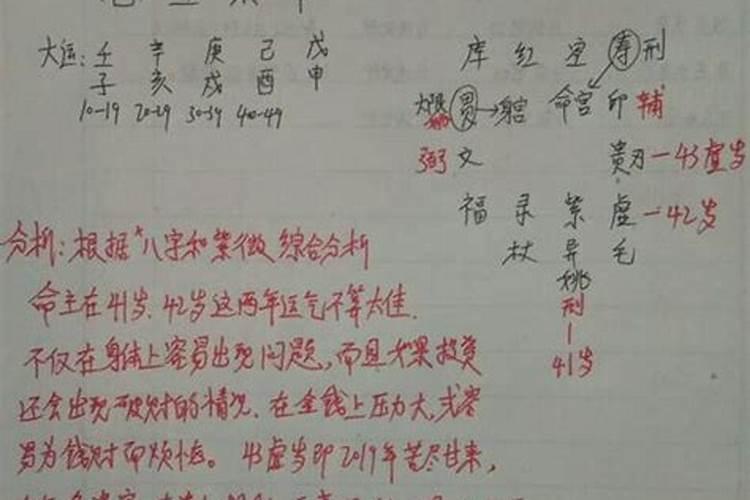 大运: 壬 辛 庚 己 戊
子 亥 戌 酉 申
10-19 20-29 30-39 40-49
库 红 空 寿 刑
大限 贯 → 命宫 印 辅
弼 文 贵 刃 - 43虚岁
福 录 紫 虚 - 42岁
杖 异 毛
姚
刑
41岁
分析: 根据"八字和紫微综合分析
命主在41岁、42岁这两年运气不算太佳.
不仅在身体上容易出现问题, 而且如果投资
还会出现破财的情况. 在金钱上压力大, 或容
易为钱财而烦恼。 43虚岁即2019年苦尽甘来,